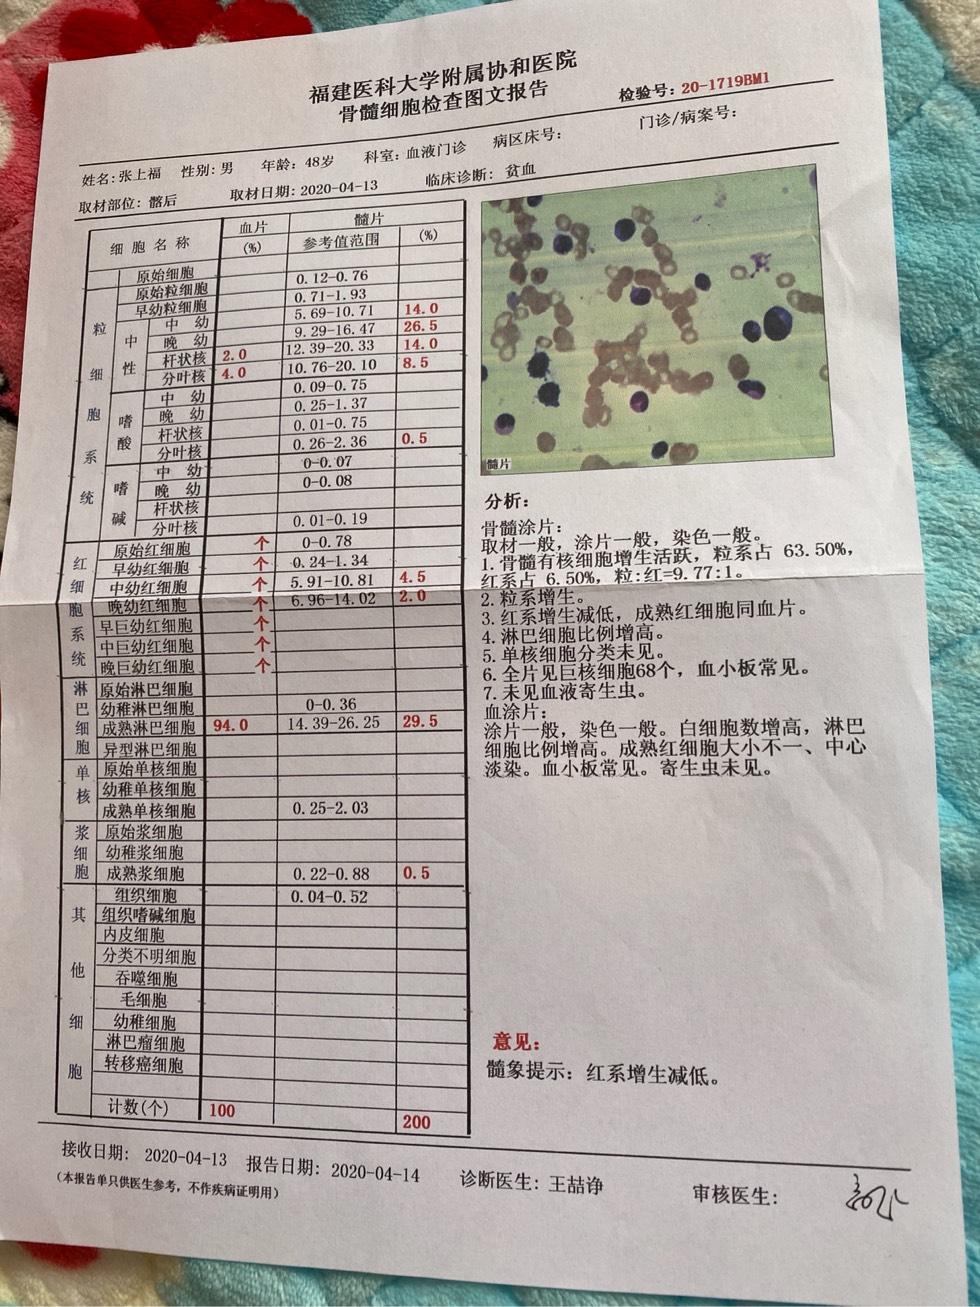 福建医科大学附属协和医院
骨髓细胞检查图文报告
检验号: 20-1719BM1
姓名: 张上福 性别: 男 年龄: 48岁 科室: 血液门诊 病区床号: 门诊/病案号:
取材部位: 髂后 取材日期: 2020-04-13 临床诊断: 贫血
细胞名称 血片 (%) 髓片 参考值范围 (%)
原始细胞 0.12-0.76
粒细胞系统
原始粒细胞 0.71-1.93
早幼粒细胞 5.69-10.71 14.0
中性
中 幼 9.29-16.47 26.5
晚 幼 12.39-20.33 14.0
杆状核 2.0 10.76-20.10 8.5
分叶核 4.0
嗜酸
中 幼 0.09-0.75
晚 幼 0.25-1.37
杆状核 0.01-0.75
分叶核 0.26-2.36 0.5
嗜碱
中 幼 0-0.07
晚 幼 0-0.08
杆状核
分叶核 0.01-0.19
红细胞系统
原始红细胞 个 0-0.78
早幼红细胞 个 0.24-1.34
中幼红细胞 个 5.91-10.81 4.5
晚幼红细胞 个 6.96-14.02 2.0
早巨幼红细胞 个
中巨幼红细胞 个
晚巨幼红细胞 个
淋巴细胞
原始淋巴细胞
幼稚淋巴细胞 0-0.36
成熟淋巴细胞 94.0 14.39-26.25 29.5
异型淋巴细胞
单核
原始单核细胞
幼稚单核细胞
成熟单核细胞 0.25-2.03
浆细胞
原始浆细胞
幼稚浆细胞
成熟浆细胞 0.22-0.88 0.5
其他细胞
组织细胞 0.04-0.52
组织嗜碱细胞
内皮细胞
分类不明细胞
吞噬细胞
毛细胞
幼稚细胞
淋巴瘤细胞
转移癌细胞
计数(个) 100 200
髓片
分析:
骨髓涂片:
取材一般,涂片一般,染色一般。
1. 骨髓有核细胞增生活跃,粒系占 63.50%,
红系占 6.50%,粒:红=9.77:1。
2. 粒系增生。
3. 红系增生减低,成熟红细胞同血片。
4. 淋巴细胞比例增高。
5. 单核细胞分类未见。
6. 全片见巨核细胞68个,血小板常见。
7. 未见血液寄生虫。
血涂片:
涂片一般,染色一般。白细胞数增高,淋巴
细胞比例增高。成熟红细胞大小不一、中心
淡染。血小板常见。寄生虫未见。
意见:
髓象提示: 红系增生减低。
接收日期: 2020-04-13 报告日期: 2020-04-14 诊断医生: 王喆诤 审核医生:
(本报告单只供医生参考,不作疾病证明用)